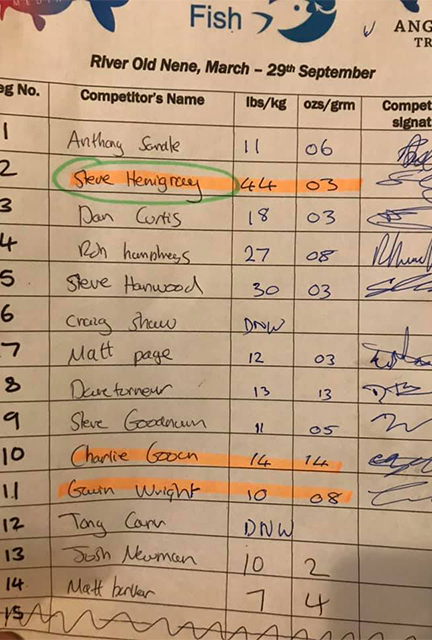 Fish ANG
TR
River Old Nene, March – 29th September
eg No. Competitor's Name lbs/kg ozs/grm Compet
signat
1 Anthony 11 06
2 Steve Hemigray 44 03
3 Dan Curtis 18 03
4 Rob humphreys 27 08
5 Steve Harwood 30 03
6 Craig Shaw DNW
7 Matt page 12 03
8 Dave turner 13 13
9 Steve Goodrum 11 05
10 Charlie Gooch 14 14
11 Gavin Wright 10 08
12 Tony Carr DNW
13 Josh Newman 10 2
14 Matt barker 7 4
15